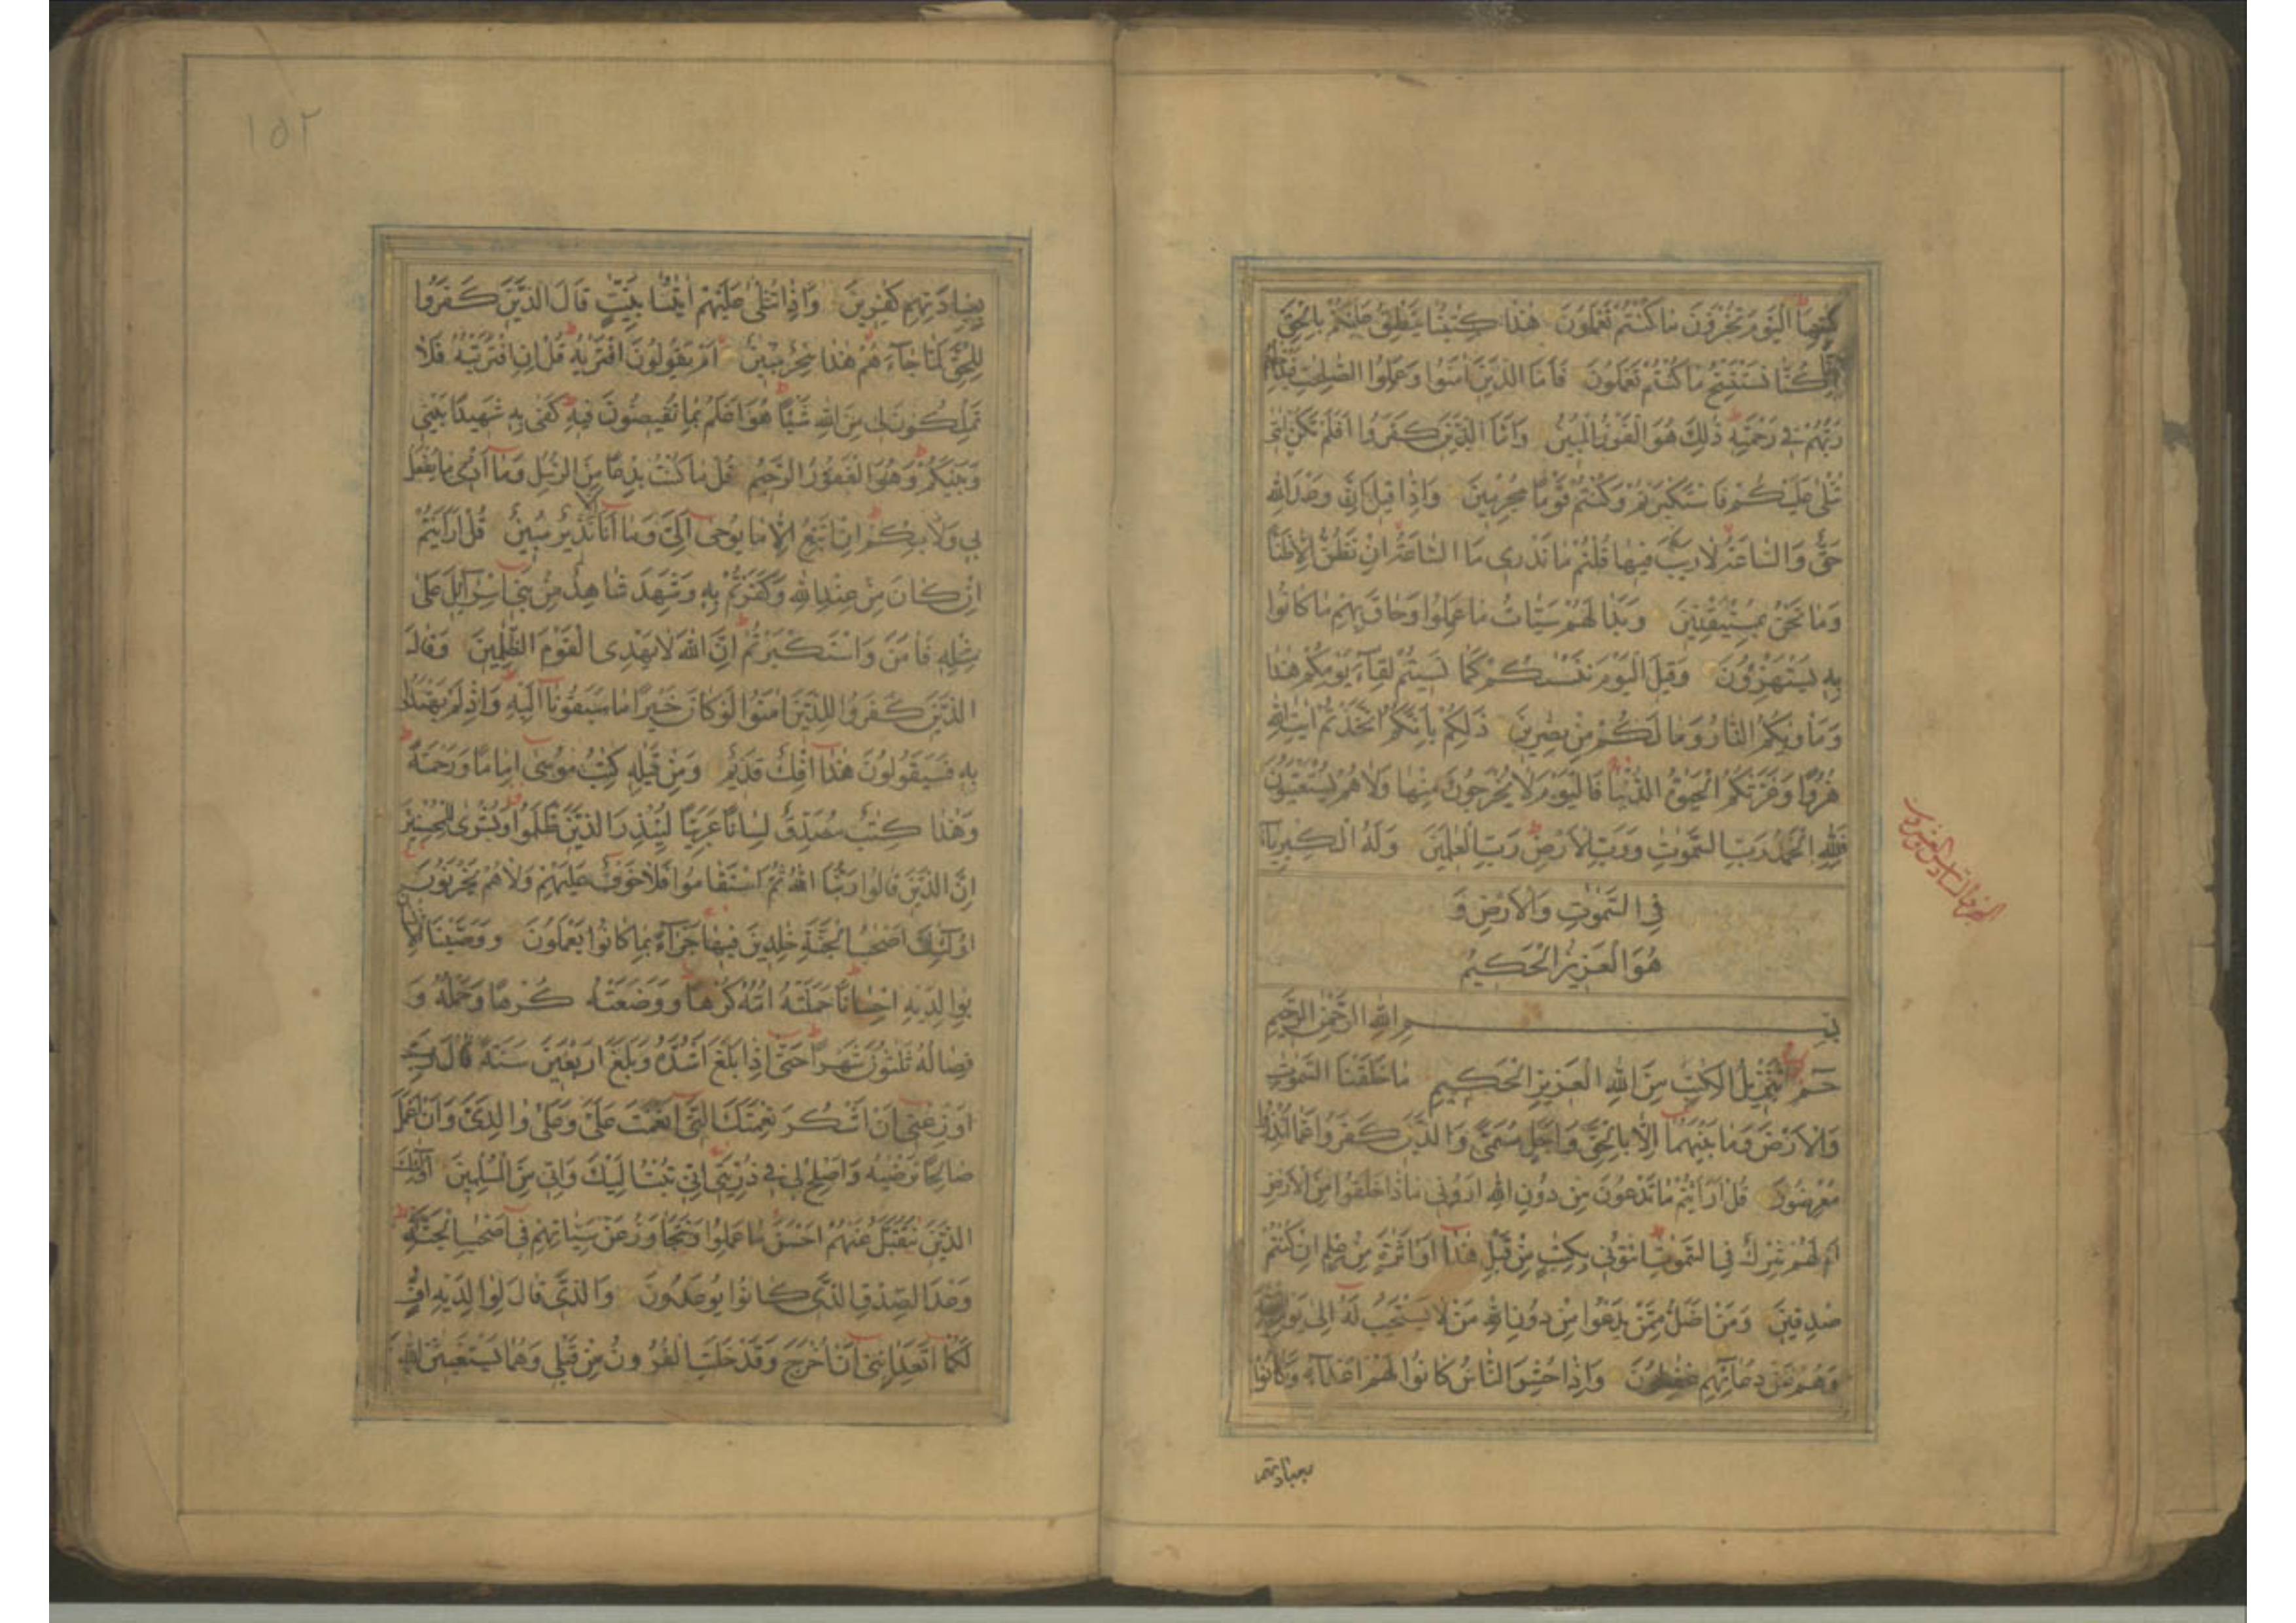 كتبها اليوم تجزون ما كنتم تعملون هذا كتبنا ينطق عليكم بالحق
انا كنا نستنسخ ما كنتم تعملون فاما الذين امنوا وعملوا الصلحت فيدخلهم
ربهم في رحمته ذلك هو الفوز المبين واما الذين كفروا افلم تكن ايتي
تتلى عليكم فاستكبرتم وكنتم قوما مجرمين واذا قيل ان وعد الله
حق والساعة لا ريب فيها قلتم ما ندري ما الساعة ان نظن الا ظنا
وما نحن بمستيقنين وبدا لهم سيئات ما عملوا وحاق بهم ما كانوا
به يستهزؤن وقيل اليوم ننسكم كما نسيتم لقاء يومكم هذا
وماويكم النار وما لكم من نصرين ذلكم بانكم اتخذتم ايت الله
هزوا وغرتكم الحيوة الدنيا فاليوم لا يخرجون منها ولا هم يستعتبون
فلله الحمد رب السموت ورب الارض رب العلمين وله الكبرياء
في السموت والارض و
هو العزيز الحكيم
الجزو السادس والعشرون
بسم الله الرحمن الرحيم
حم تنزيل الكتب من الله العزيز الحكيم ما خلقنا السموت
والارض وما بينهما الا بالحق واجل مسمى والذين كفروا عما انذروا
معرضون قل ارايتم ما تدعون من دون الله اروني ماذا خلقوا من الارض
ام لهم شرك في السموت ائتوني بكتب من قبل هذا او اثرة من علم ان كنتم
صدقين ومن اضل ممن يدعوا من دون الله من لا يستجيب له الى يوم
وهم عن دعائهم غفلون واذا حشر الناس كانوا لهم اعداء وكانوا
بعبادتهم
١٥٢
بعبادتهم كفرين واذا تتلى عليهم ايتنا بينت قال الذين كفروا
للحق لما جاءهم هذا سحر مبين ام يقولون افتريه قل ان افتريته فلا
تملكون لي من الله شيئا هو اعلم بما تفيضون فيه كفى به شهيدا بيني
وبينكم وهو الغفور الرحيم قل ما كنت بدعا من الرسل وما ادري ما يفعل
بي ولا بكم ان اتبع الا ما يوحى الي وما انا الا نذير مبين قل ارايتم
ان كان من عند الله وكفرتم به وشهد شاهد من بني اسرائيل على
مثله فامن واستكبرتم ان الله لا يهدي القوم الظلمين وقال
الذين كفروا للذين امنوا لو كان خيرا ما سبقونا اليه واذ لم يهتدوا
به فسيقولون هذا افك قديم ومن قبله كتب موسى اماما ورحمة
وهذا كتب مصدق لسانا عربيا لينذر الذين ظلموا وبشرى للمحسنين
ان الذين قالوا ربنا الله ثم استقاموا فلا خوف عليهم ولا هم يحزنون
اولئك اصحب الجنة خلدين فيها جزاء بما كانوا يعملون ووصينا الانسان
بوالديه احسانا حملته امه كرها ووضعته كرها وحمله و
فصاله ثلثون شهرا حتى اذا بلغ اشده وبلغ اربعين سنة قال رب
اوزعني ان اشكر نعمتك التي انعمت علي وعلى والدي وان اعمل
صالحا ترضيه واصلح لي في ذريتي اني تبت اليك واني من المسلمين اولئك
الذين نتقبل عنهم احسن ما عملوا ونتجاوز عن سياتهم في اصحب الجنة
وعد الصدق الذي كانوا يوعدون والذي قال لوالديه اف
لكما اتعدانني ان اخرج وقد خلت القرون من قبلي وهما يستغيثن الله